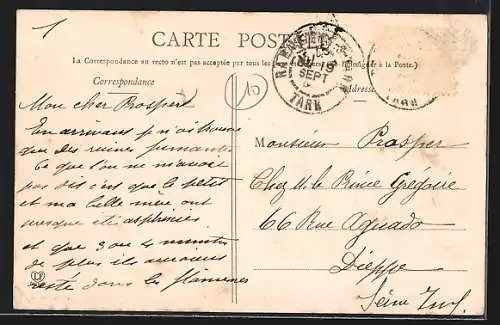 1
CARTE POSTALE
La Correspondance au recto n'est pas acceptée par tous les
à la Poste.)
Correspondance
Adresse
RABASTENS
19
SEPT
TARN
TARN
10
Mon cher Prosper
En arrivant je n'ai trouvé
que des ruines fumantes
Ce que l'on ne m'avait
pas dit c'est que le petit
et ma belle mère ont
presque été asphyxiés
et que 3 ou 4 minutes
de plus ils auraient
resté dans les flammes
Monsieur Prosper
Chez M. le Prince Grégoire
66 Rue Aguado
Dieppe
Seine Inf.